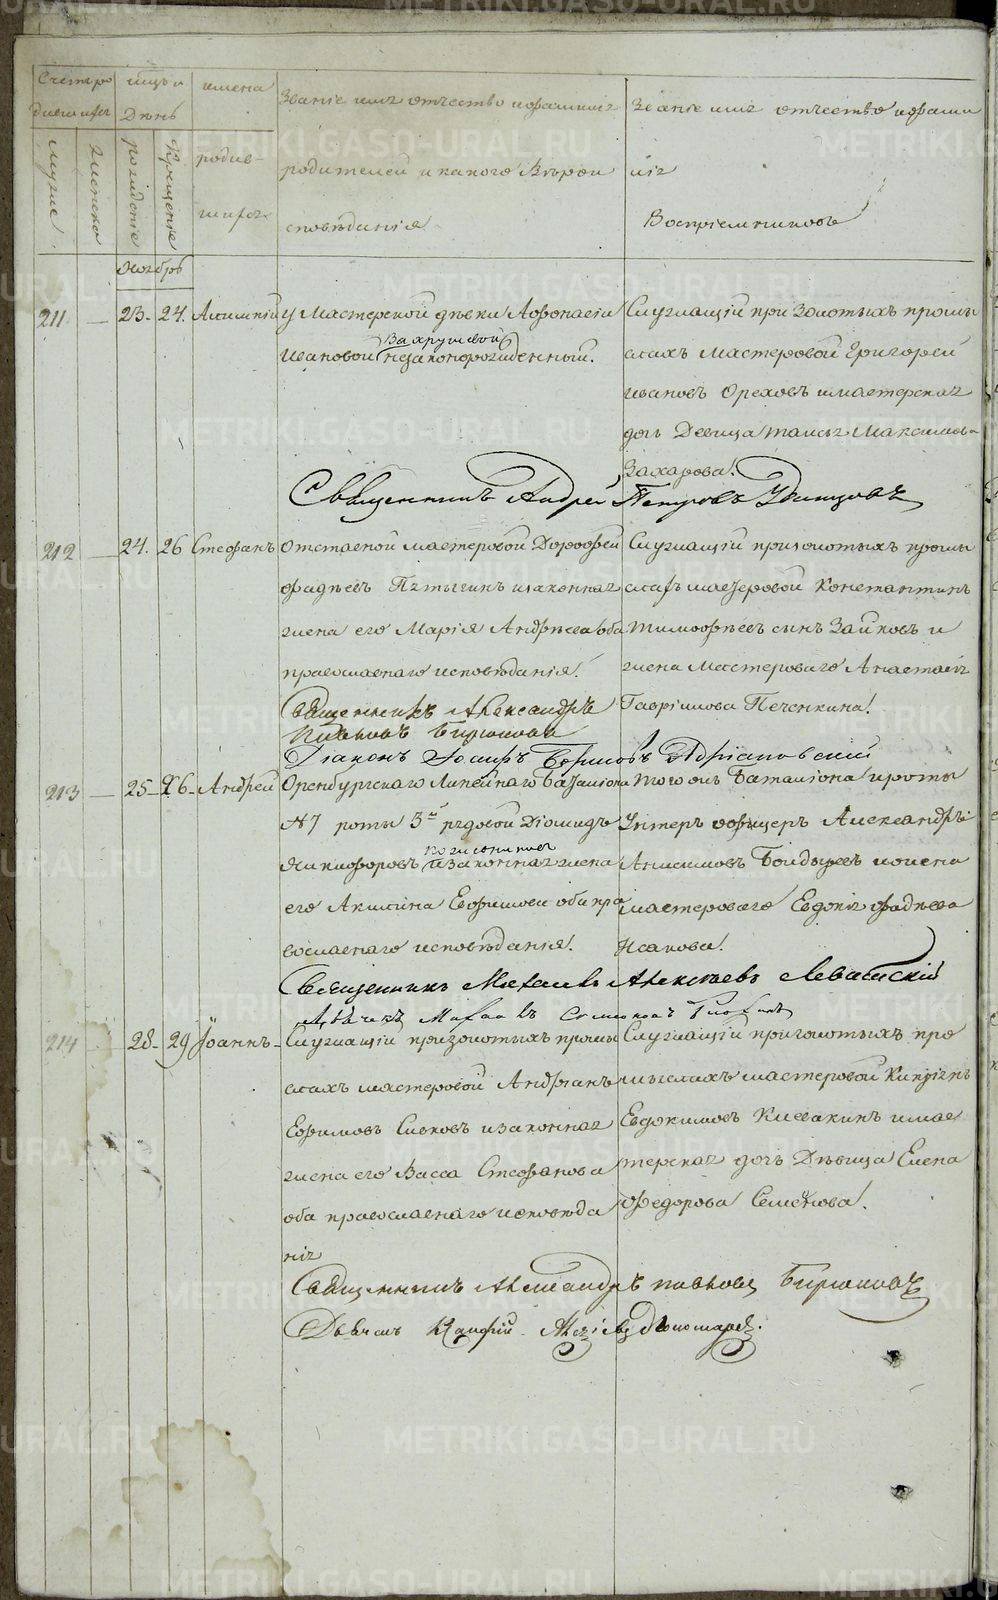 Счетъ ро
дившихся
мѣсяцъ и
День
имена
родив-
шихся
Званіе имя отчество и фамилія
родителей и какого Вѣроис
повѣданія
Званіе имя отчество и фами
лія
Воспріемниковъ
мужие
женско
рожденіе
крещеніе
Ноябрь
211 — 23. 24.
У Мастерской дѣвки Афонасіи
Ивановой Вахрушевой незаконорожденный.
Служащій при Золотыхъ промы
слахъ мастеровой Григорей
Ивановъ Ореховъ и мастерская
дочь Девица Таисья Максимова
Захарова.
Священникъ Андрей Петровъ Удинцовъ
212 — 24. 26 Стефанъ
Отставной мастеровой Дорофей
Фадѣевъ Пятыгинъ и законная
жена его Марія Андрѣева оба
православнаго исповѣданія.
Служащій при золотыхъ промы
слахъ мастеровой Константинъ
Тимофѣевъ сынъ Зайковъ и
жена Мастероваго Анастасія
Гавріилова Печенкина.
Священникъ Александръ
Павловъ Бирюковъ
Діаконъ Іосифъ Борисовъ Адріановскій
213 — 25 — 26 — Андрей
Оренбургскаго Линейнаго Баталіона
№7 роты 3й рядовой Діомидъ
Никифоровъ Кожевниковъ и законная жена
его Акилина Ефимова оба пра
вославнаго исповѣданія.
Того жъ Баталіона и роты
Унтеръ офицеръ Александръ
Анисимовъ Болдыревъ и жена
мастероваго Евдокія Фадѣева
Исакова.
Священникъ Михаилъ Алексѣевъ Левитскій
Дьячекъ Михаилъ
214 28 — 29 Іоаннъ —
Служащій при золотыхъ промы
слахъ мастеровой Андріанъ
Ефимовъ Сивковъ и законная
жена его Васса Стефанова
оба православнаго исповѣда
нія
Служащій при золотыхъ про
мыслахъ мастеровой Кипріянъ
Евдокимовъ Кисвакинъ и мас
терская дочь Дѣвица Елена
Федорова Семенова.
Священникъ Александръ Павловъ Бирюковъ
Дьячекъ
METRIKI.GASO-URAL.RU